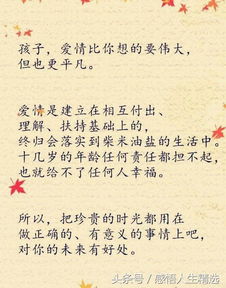 孩子，爱情比你想的要伟大，
但也更平凡。
爱情是建立在相互付出、
理解、扶持基础上的，
终归会落实到柴米油盐的生活中。
十几岁的年龄任何责任都担不起，
也就给不了任何人幸福。
所以，把珍贵的时光都用在
做正确的、有意义的事情上吧，
对你的未来有好处。
头条号/感悟人生精选